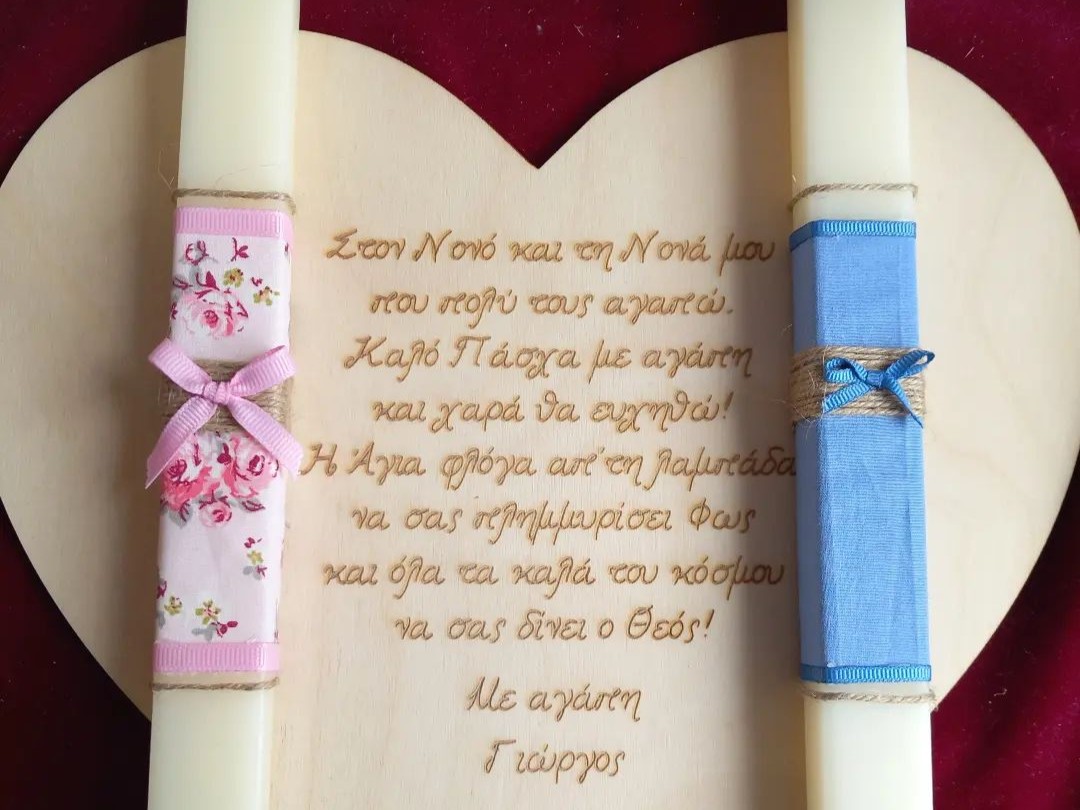 Στον Νονό και τη Νονά μου
που πολύ τους αγαπώ.
Καλό Πάσχα με αγάπη
και χαρά θα ευχηθώ!
Η Άγια φλόγα απ'τη λαμπάδα
να σας πλημμυρίσει Φως
και όλα τα καλά του κόσμου
να σας δίνει ο Θεός!
Με αγάπη
Γιώργος